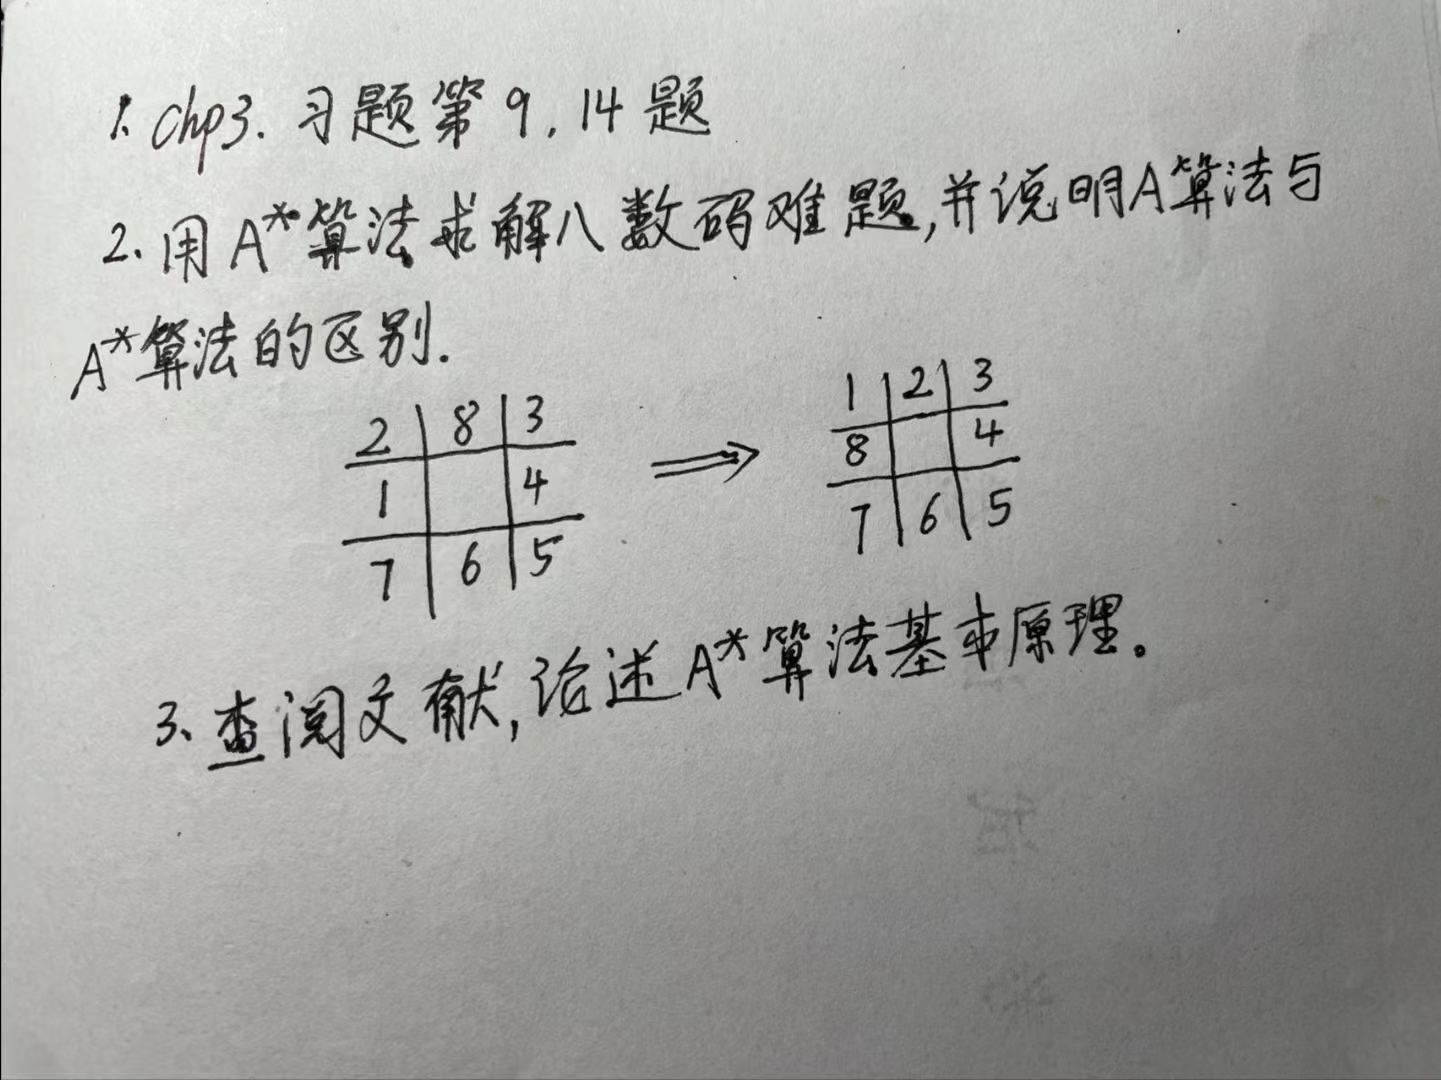 1. Chp3. 习题第 9, 14 题
2. 用 A*算法求解八数码难题,并说明A算法与
A*算法的区别.
2 8 3
1 4
7 6 5
⟹
1 2 3
8 4
7 6 5
3、查阅文献,论述A*算法基本原理。